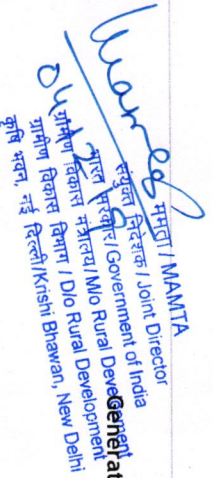 Mamta
04/12/19
ममता / MAMTA
संयुक्त निदेशक / Joint Director
भारत सरकार / Government of India
ग्रामीण विकास मंत्रालय / M/o Rural Development
ग्रामीण विकास विभाग / D/o Rural Development
कृषि भवन, नई दिल्ली/Krishi Bhawan, New Delhi
Generat